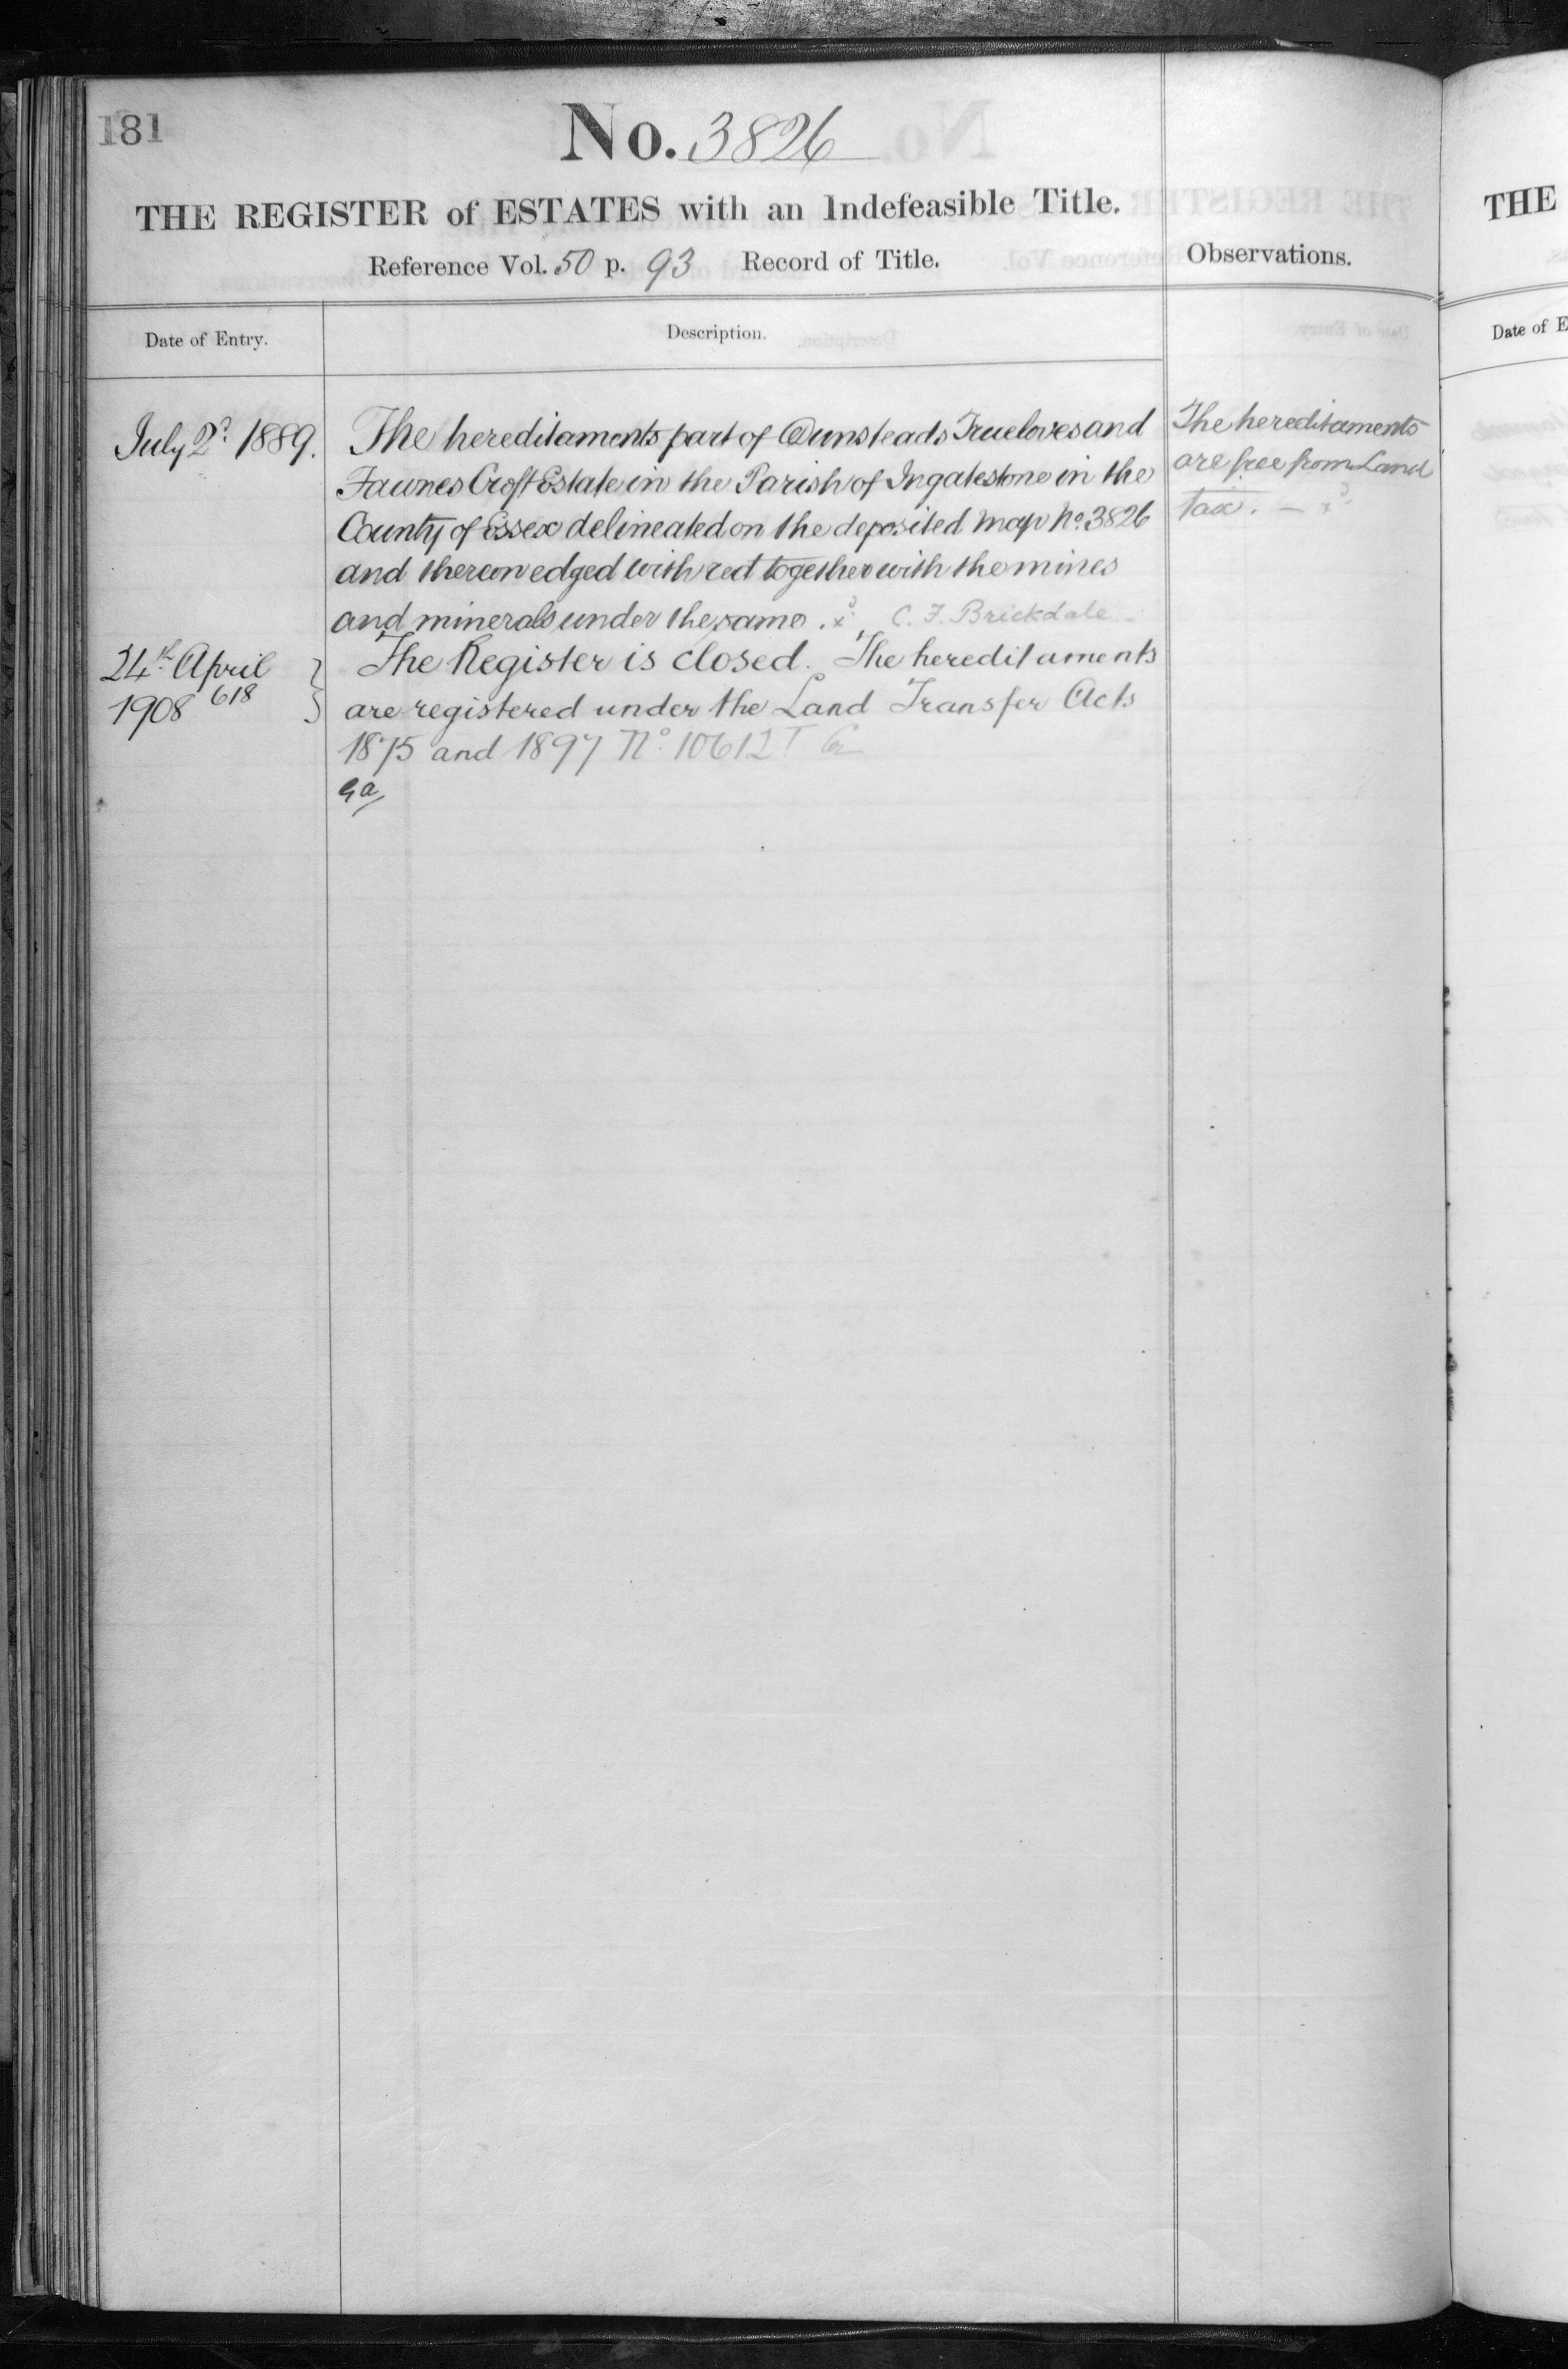 181
No. 3826
THE REGISTER of ESTATES with an Indefeasible Title.
Reference Vol. 50 p. 93 Record of Title.
Observations.
Date of Entry.
Description.
July 2d. 1889.
The hereditaments part of Dunsteads Trueloves and
Fawnes Croft Estate in the Parish of Ingatestone in the
County of Essex delineated on the deposited map No. 3826
and thereon edged with red together with the mines
and minerals under the same. C. F. Brickdale
The hereditaments
are free from Land
tax.
24th April
1908 618
The Register is closed. The hereditaments
are registered under the Land Transfer Acts
1875 and 1897 No. 10612
THE
Date of E